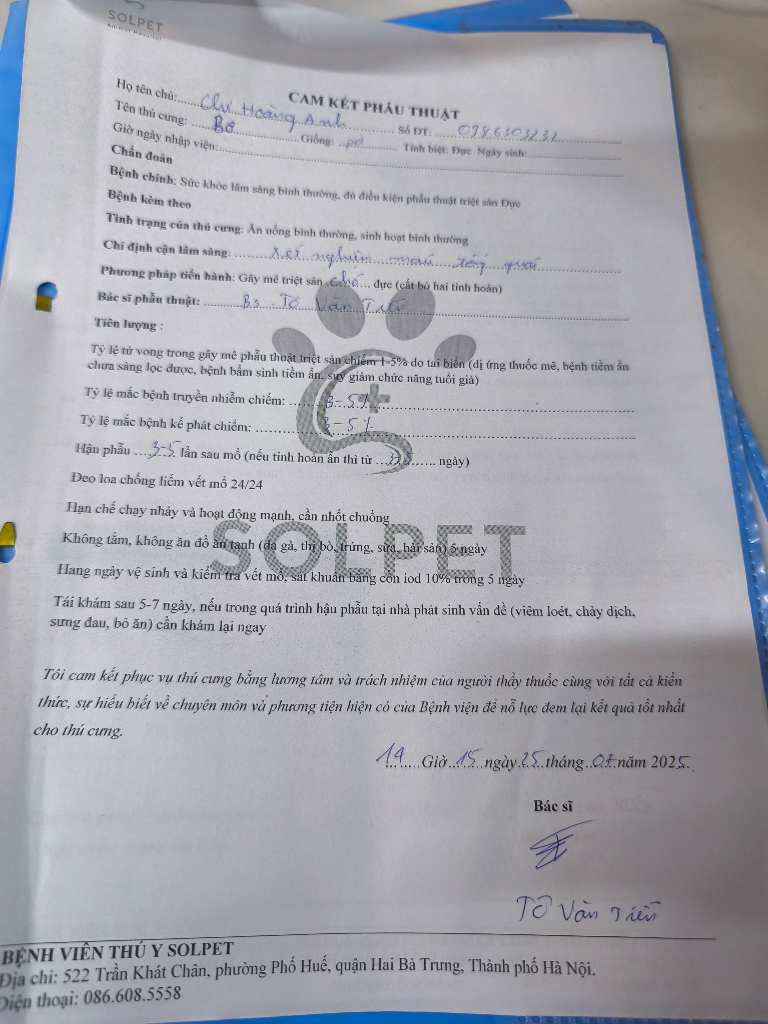 SOLPET
Animal Hospital
CAM KẾT PHẪU THUẬT
Họ tên chủ: Chị Hoàng Anh Số ĐT: 0986303232
Tên thú cưng: Bơ Giống: pol Tính biệt: Đực Ngày sinh:
Giờ ngày nhập viện:
Chẩn đoán
Bệnh chính: Sức khỏe lâm sàng bình thường, đủ điều kiện phẫu thuật triệt sản Đực
Bệnh kèm theo
Tình trạng của thú cưng: Ăn uống bình thường, sinh hoạt bình thường
Chỉ định cận lâm sàng: xét nghiệm máu tổng quát
Phương pháp tiến hành: Gây mê triệt sản chó đực (cắt bỏ hai tinh hoàn)
Bác sĩ phẫu thuật: Bs Tô Văn Tiến
Tiên lượng :
Tỷ lệ tử vong trong gây mê phẫu thuật triệt sản chiếm 1-5% do tai biến (dị ứng thuốc mê, bệnh tiềm ẩn
chưa sàng lọc được, bệnh bẩm sinh tiềm ẩn, suy giảm chức năng tuổi già)
Tỷ lệ mắc bệnh truyền nhiễm chiếm: 3-5%
Tỷ lệ mắc bệnh kế phát chiếm: 3-5%
Hậu phẫu 3-5 lần sau mổ (nếu tinh hoàn ẩn thì từ ngày)
Đeo loa chống liếm vết mổ 24/24
Hạn chế chạy nhảy và hoạt động mạnh, cần nhốt chuồng
Không tắm, không ăn đồ ăn tanh (da gà, thị bò, trứng, sữa, hải sản) 5 ngày
SOLPET
Hang ngày vệ sinh và kiểm tra vết mổ, sát khuẩn bằng cồn iod 10% trong 5 ngày
Tái khám sau 5-7 ngày, nếu trong quá trình hậu phẫu tại nhà phát sinh vấn đề (viêm loét, chảy dịch,
sưng đau, bỏ ăn) cần khám lại ngay
Tôi cam kết phục vụ thú cưng bằng lương tâm và trách nhiệm của người thầy thuốc cùng với tất cả kiến
thức, sự hiểu biết về chuyên môn và phương tiện hiện có của Bệnh viện để nỗ lực đem lại kết quả tốt nhất
cho thú cưng.
14 Giờ 15 ngày 25 tháng 07 năm 2025
Bác sĩ
Tô Văn Tiến
BỆNH VIỆN THÚ Y SOLPET
Địa chỉ: 522 Trần Khát Chân, phường Phố Huế, quận Hai Bà Trưng, Thành phố Hà Nội.
Điện thoại: 086.608.5558